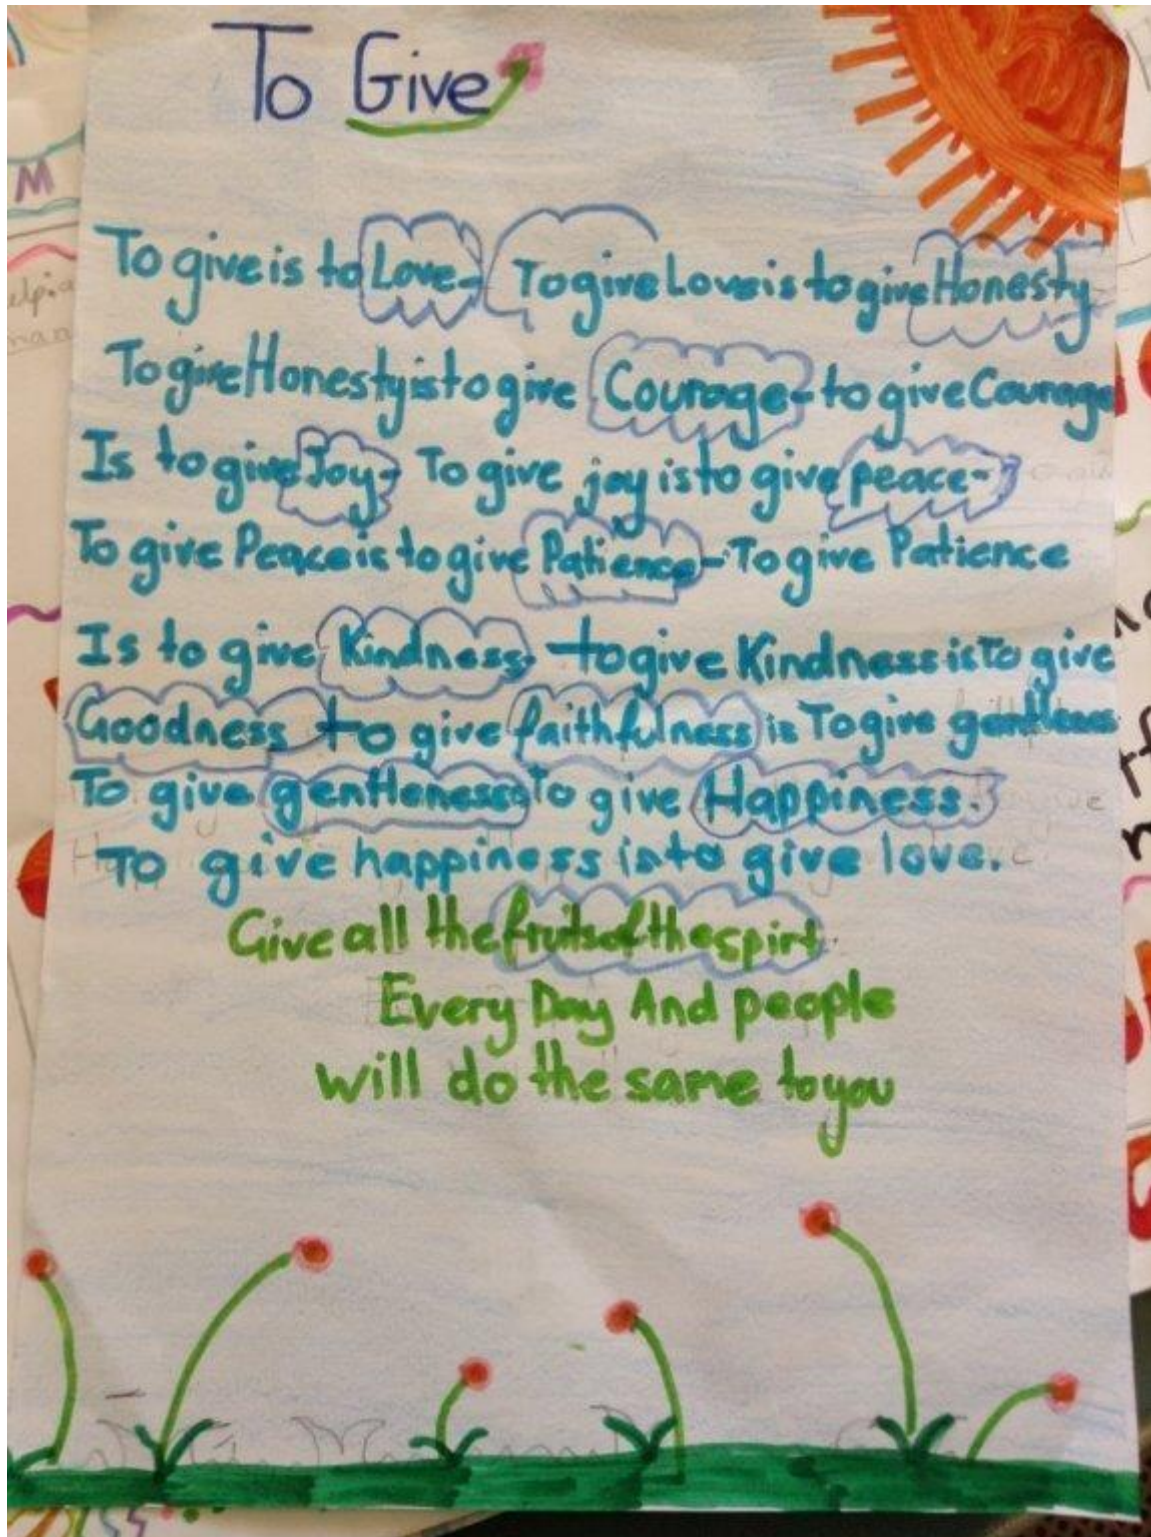 To Give
To give is to Love- To give Love is to give Honesty
To give Honesty is to give Courage- to give Courage
Is to give Joy- To give joy is to give peace-
To give Peace is to give Patience- To give Patience
Is to give Kindness. to give Kindness is To give
Goodness to give faithfulness is To give gentleness
To give gentleness to give Happiness.
To give happiness is to give love.
Give all the fruits of the spirt.
Every Day And people
will do the same to you
M